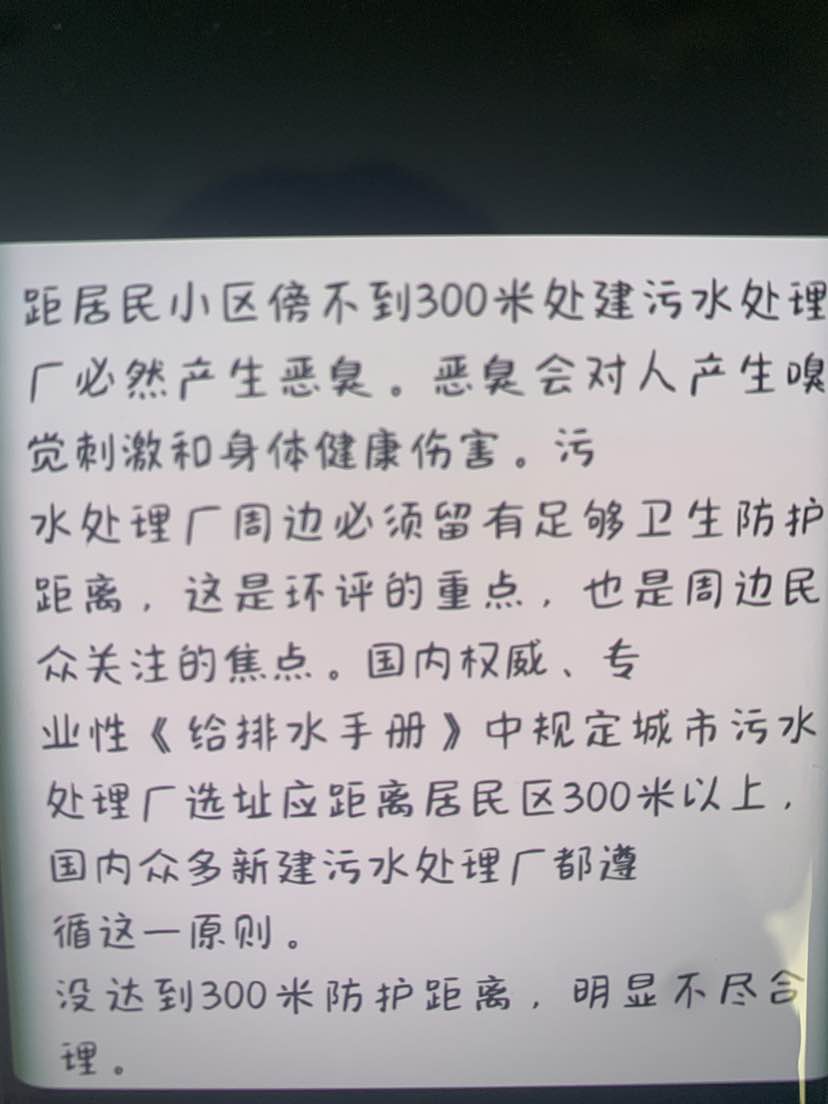 距居民小区傍不到300米处建污水处理
厂必然产生恶臭。恶臭会对人产生嗅
觉刺激和身体健康伤害。污
水处理厂周边必须留有足够卫生防护
距离，这是环评的重点，也是周边民
众关注的焦点。国内权威、专
业性《给排水手册》中规定城市污水
处理厂选址应距离居民区300米以上，
国内众多新建污水处理厂都遵
循这一原则。
没达到300米防护距离，明显不尽合
理。